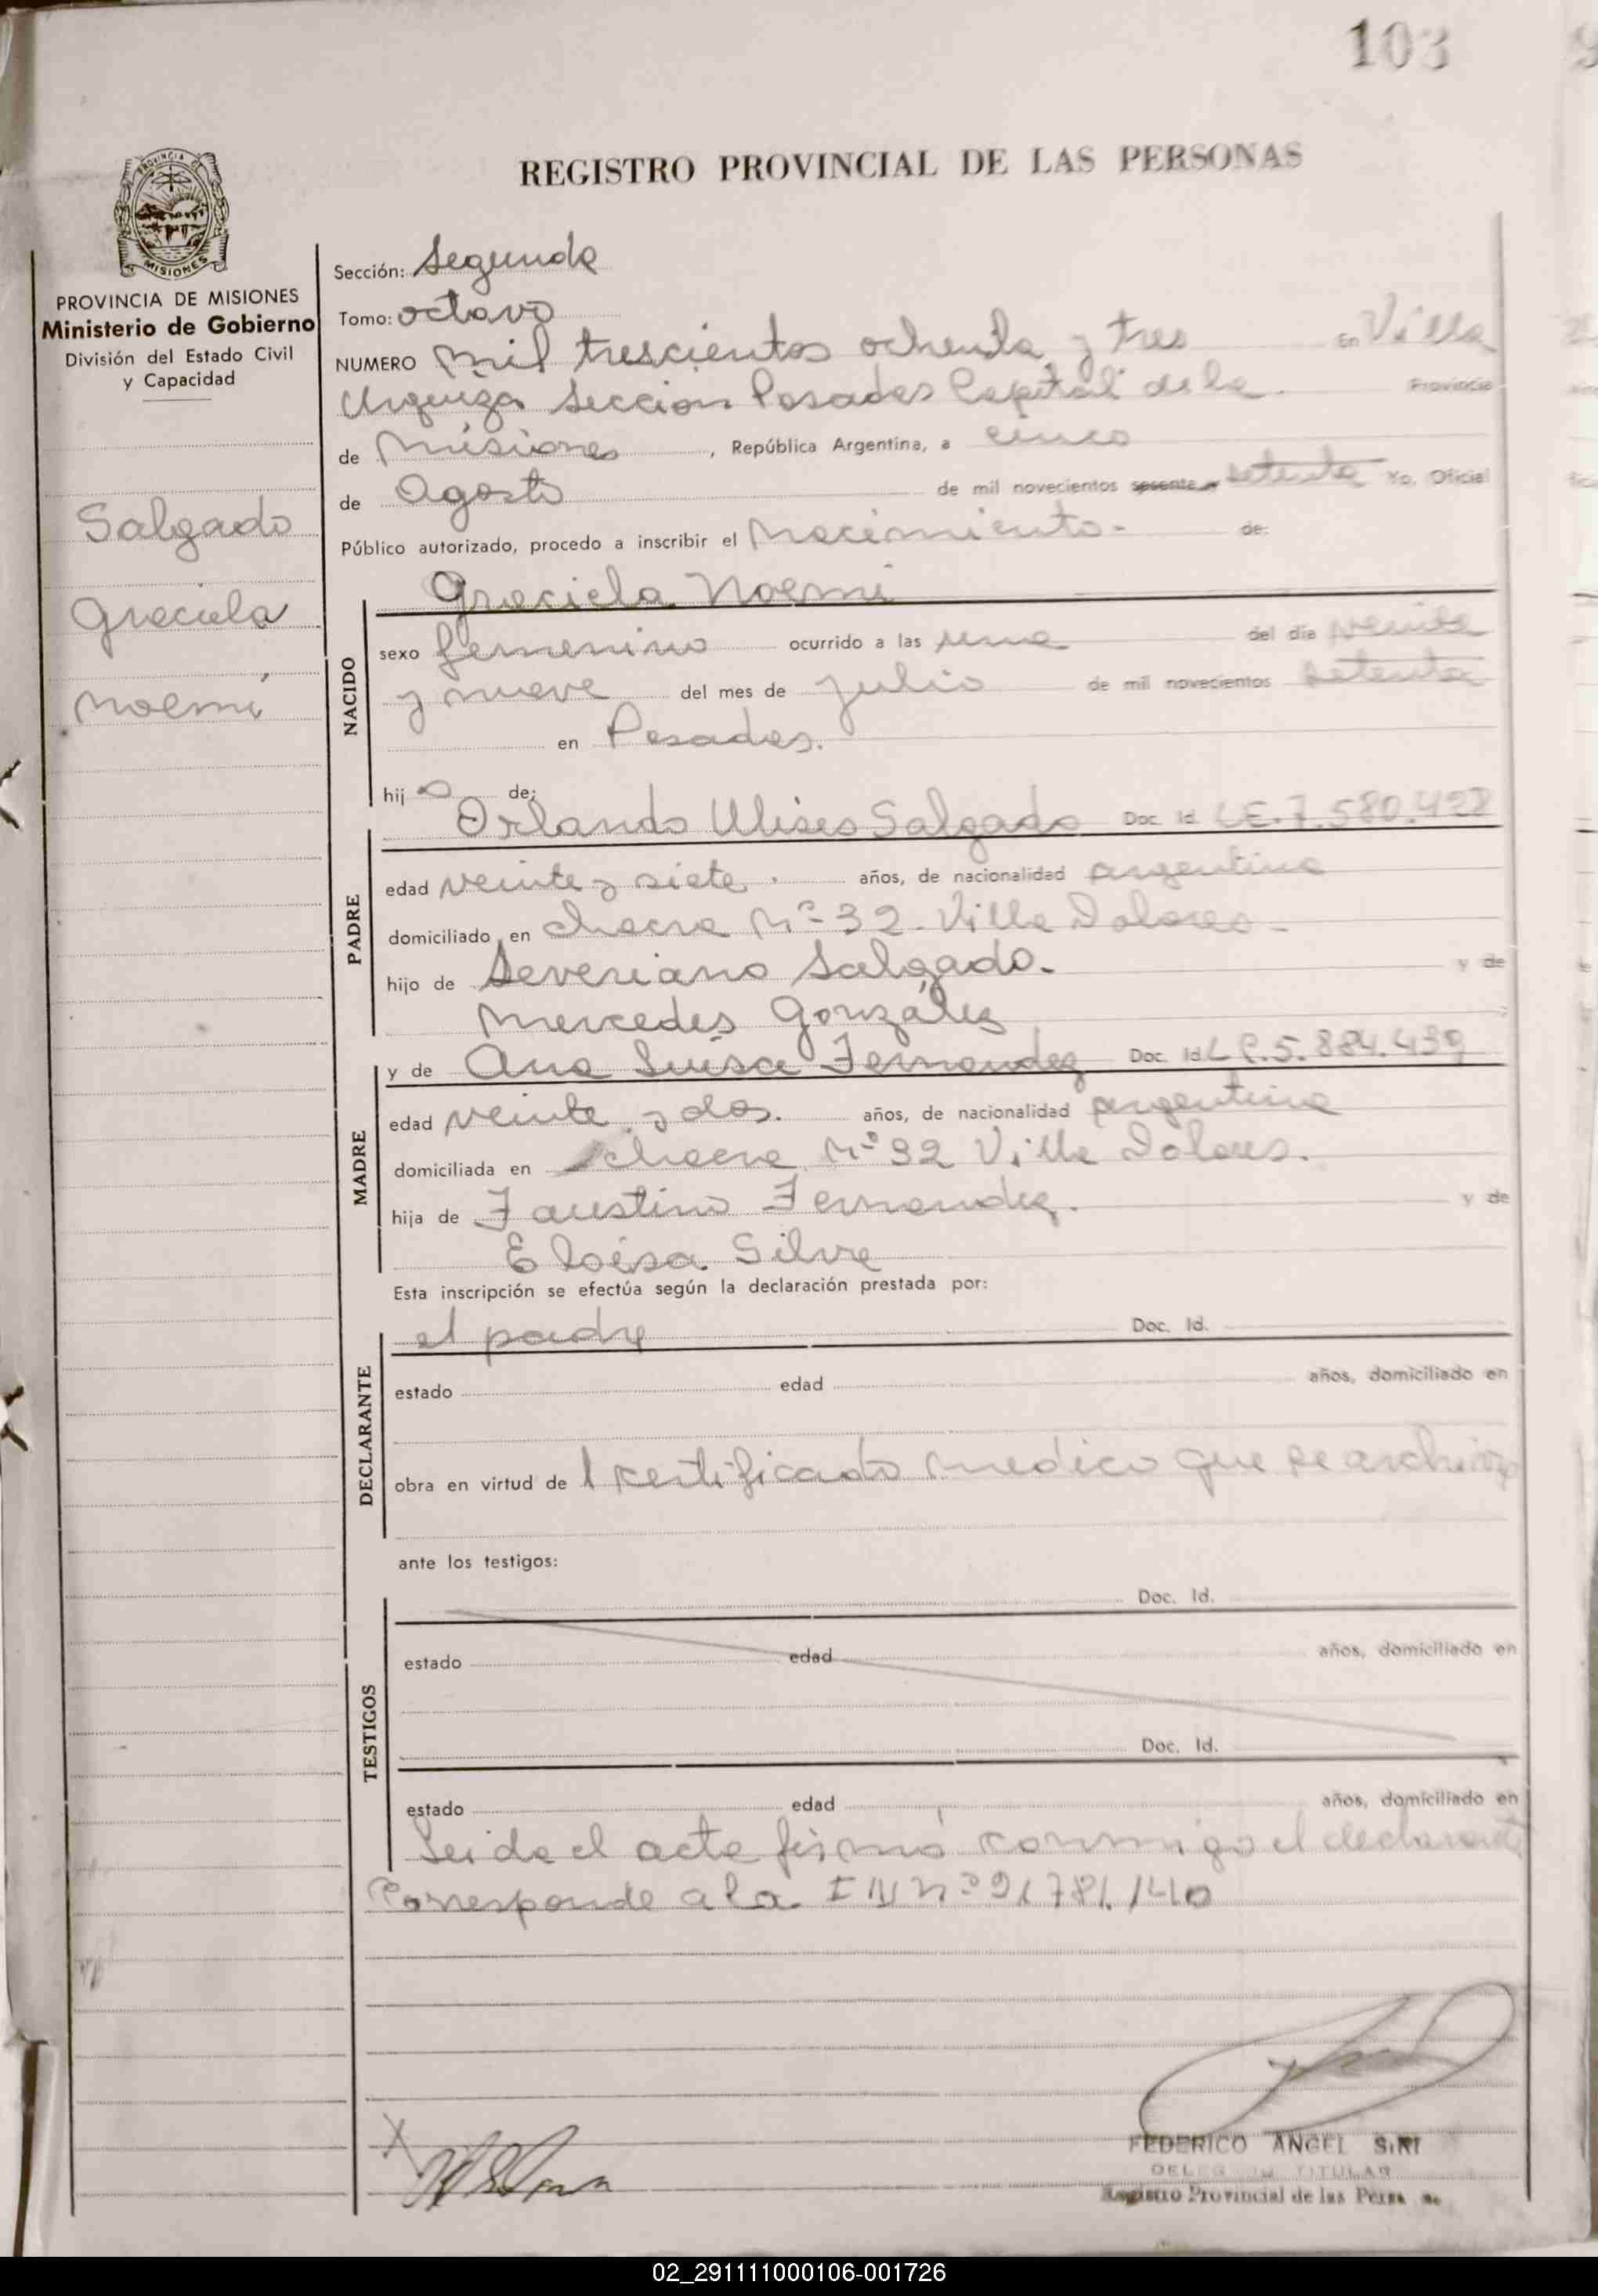 103
REGISTRO PROVINCIAL DE LAS PERSONAS
PROVINCIA DE MISIONES
PROVINCIA DE MISIONES
Ministerio de Gobierno
División del Estado Civil
y Capacidad
Salgado
Graciela
Noemí
Sección: Segunda
Tomo: octavo
NUMERO mil trescientos ochenta y tres En Villa
Urquiza Seccion Posadas Capital de la Provincia
de Misiones, República Argentina, a cinco
de Agosto de mil novecientos sesenta y setenta Yo, Oficial
Público autorizado, procedo a inscribir el Nacimiento- de:
NACIDO
Graciela Noemi
sexo femenino ocurrido a las una del día veinte
y nueve del mes de julio de mil novecientos setenta
en Posadas.
hij a de:
PADRE
Orlando Ulises Salgado Doc. Id. LE. 7.580.422
edad veinte y siete. años, de nacionalidad argentina
domiciliado en chacra Nº 32- Villa Dolores-
hijo de Severiano Salgado. y de
Mercedes González
MADRE
y de Ana Luisa Fernandez Doc. Id. L C. 5.884.439
edad veinte y dos. años, de nacionalidad argentina
domiciliada en chacra Nº 32 Villa Dolores.
hija de Faustino Fernandez. y de
Eloisa Silva
Esta inscripción se efectúa según la declaración prestada por:
DECLARANTE
el padre Doc. Id.
estado edad años, domiciliado en
obra en virtud de 1 certificado medico que se archiva
ante los testigos:
TESTIGOS
Doc. Id.
estado edad años, domiciliado en
Doc. Id.
estado edad años, domiciliado en
Leida el acta firmó conmigo el declarante
Corresponde a la
FEDERICO ANGEL SIRI
TITULAR
Registro Provincial de las Pers
02_291111000106-001726